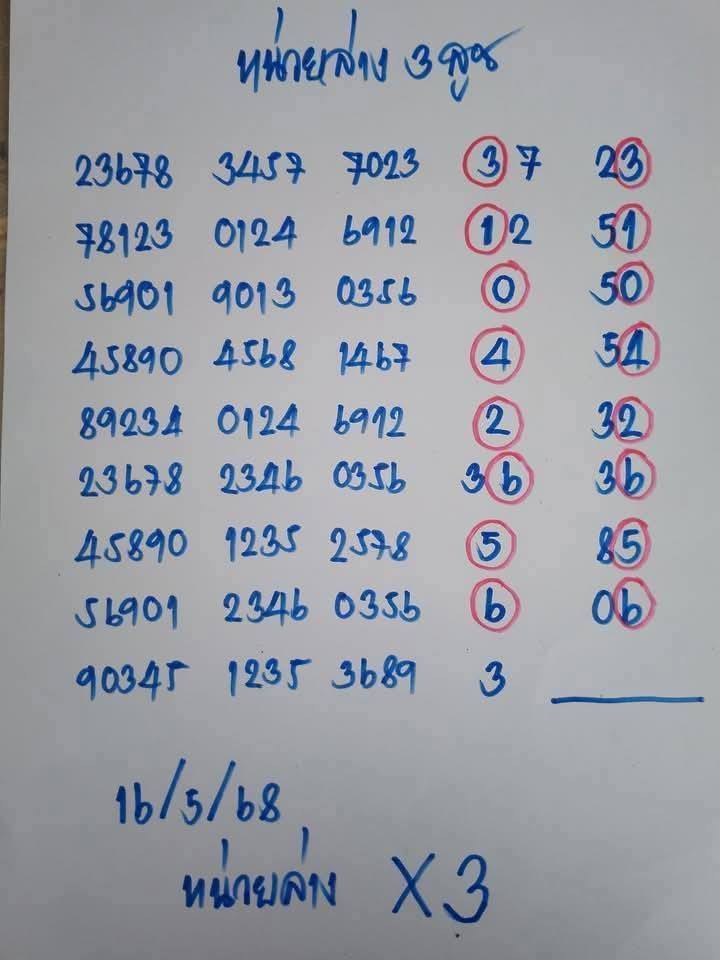 หน่วยล่าง 3 สูตร
23678 3457 7023 37 23
78123 0124 6912 12 51
56901 9013 0356 0 50
45890 4568 1467 4 54
89234 0124 6912 2 32
23678 2346 0356 36 36
45890 1235 2578 5 85
56901 2346 0356 6 06
90345 1235 3689 3
16/5/68
หน่วยล่าง X3